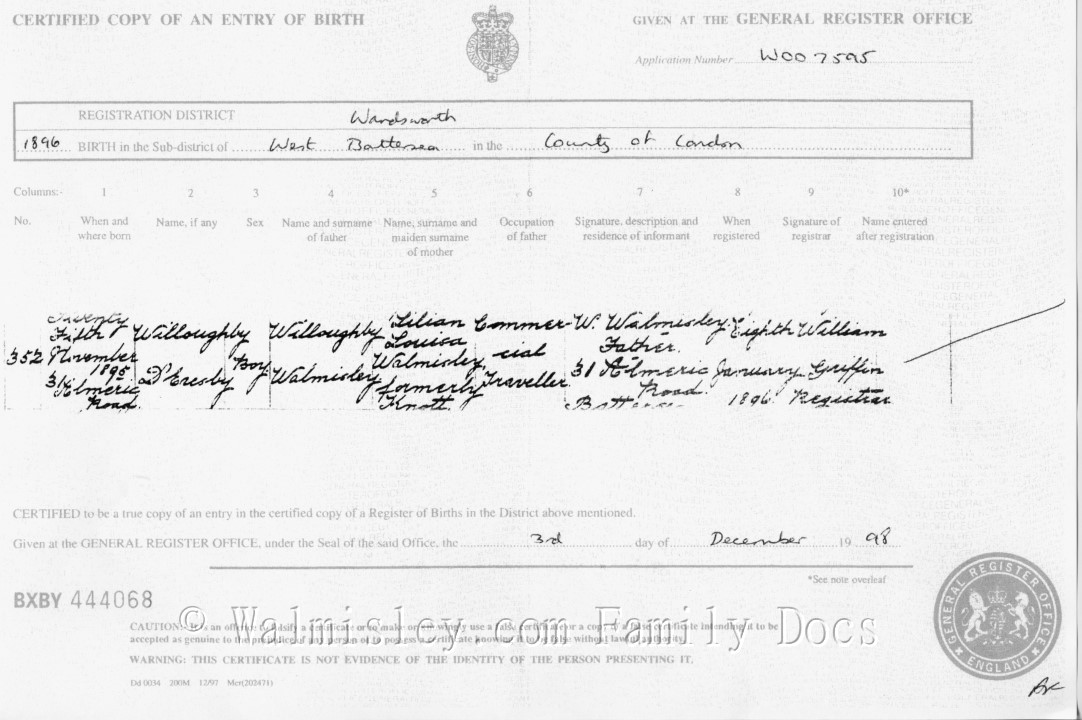 CERTIFIED COPY OF AN ENTRY OF BIRTH
GIVEN AT THE GENERAL REGISTER OFFICE
Application Number W007595
REGISTRATION DISTRICT Wandsworth
1896 BIRTH in the Sub-district of West Battersea in the County of London
Columns:- 1 2 3 4 5 6 7 8 9 10*
No. When and where born Name, if any Sex Name and surname of father Name, surname and maiden surname of mother Occupation of father Signature, description and residence of informant When registered Signature of registrar Name entered after registration
352
Twenty
Fifth
November
1895
31 Almeric
Road
Willoughby
D'Eresby
Boy
Willoughby
Walmisley
Lilian
Louisa
Walmisley
formerly
Knott
Commer-
cial
Traveller
W. Walmisley
Father.
31 Almeric
Road
Battersea
Eighth
January
1896
William
Griffin
Registrar
CERTIFIED to be a true copy of an entry in the certified copy of a Register of Births in the District above mentioned.
Given at the GENERAL REGISTER OFFICE, under the Seal of the said Office, the 3rd day of December 19 98
*See note overleaf
BXBY 444068
© Walmisley.com Family Docs
CAUTION:- It is an offence to falsify a certificate or to make or knowingly use a false certificate or a copy of a false certificate intending it to be
accepted as genuine to the prejudice of any person or to possess a certificate knowing it to be false without lawful authority.
WARNING: THIS CERTIFICATE IS NOT EVIDENCE OF THE IDENTITY OF THE PERSON PRESENTING IT.
Dd 0034 200M 12/97 Mcr(202471)
GENERAL REGISTER OFFICE
ENGLAND